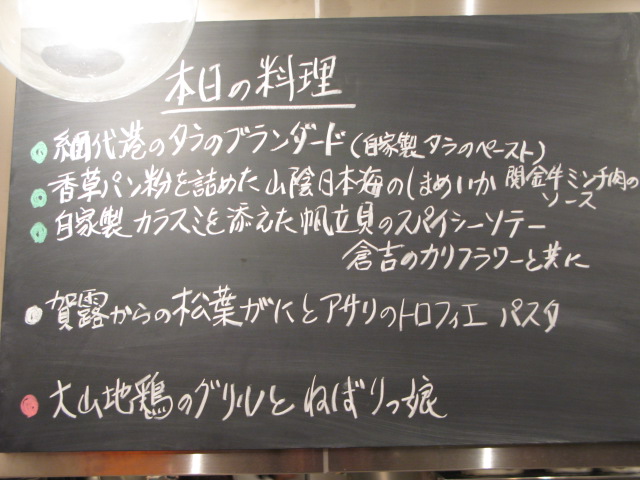 本日の料理
網代港のタラのブランダード（自家製タラのペースト）
香草パン粉を詰めた山陰日本海のしまめいか 関金牛ミンチ肉のソース
自家製カラスミを添えた帆立貝のスパイシーソテー
倉吉のカリフラワーと共に
賀露からの松葉がにとアサリのトロフィエ パスタ
大山地鶏のグリルと ねばりっ娘